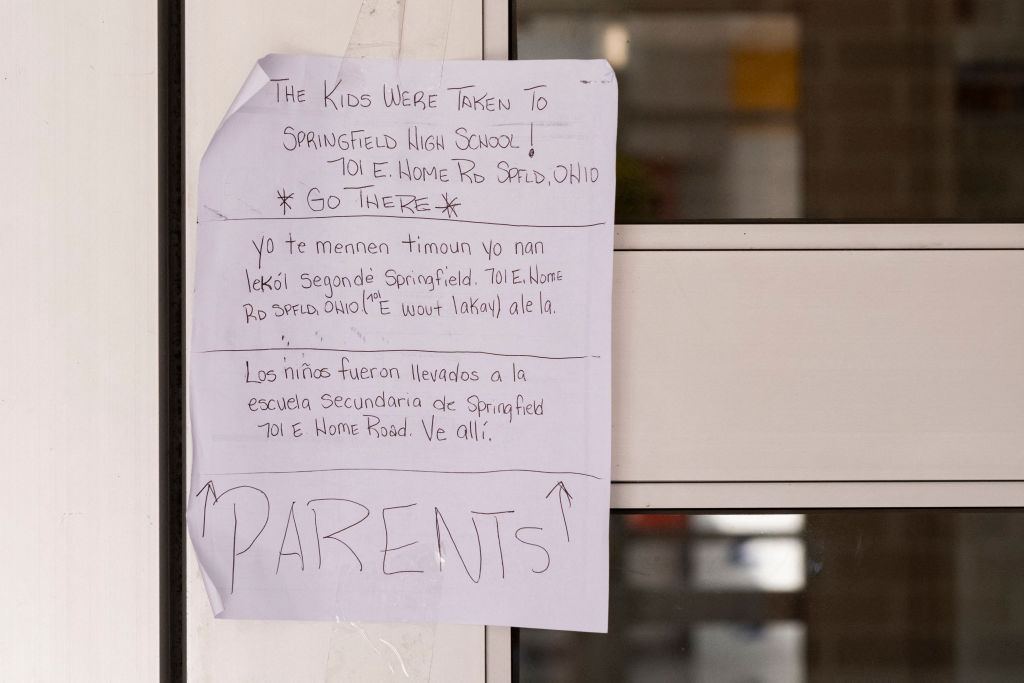 THE KIDS WERE TAKEN TO
SPRINGFIELD HIGH SCHOOL!
701 E. HOME RD SPFLD, OHIO
* GO THERE *
yo te mennen timoun yo nan
lekól segondè Springfield. 701 E. HOME
RD SPFLD, OHIO (701 E wout lakay) ale la.
Los niños fueron llevados a la
escuela secundaria de Springfield
701 E HOME ROAD. Ve allí.
↑ PARENTS ↑